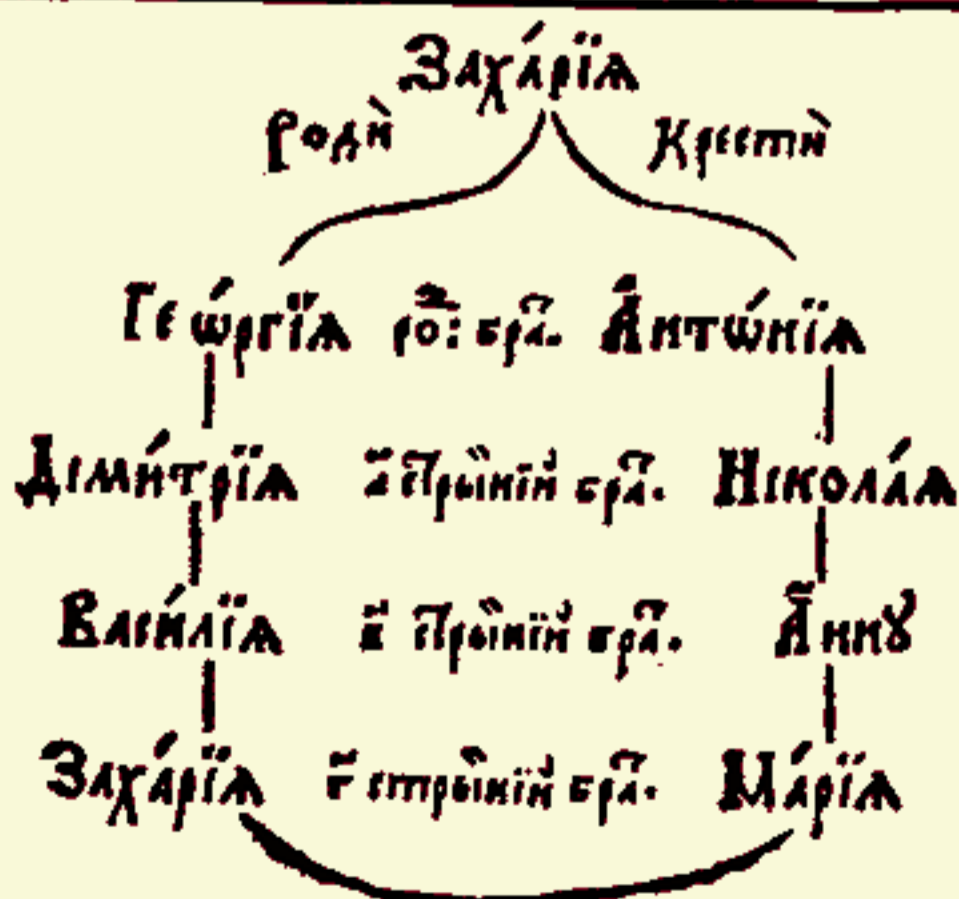 Заха́рїѧ
роди̏ Крести̏
Геѡ́ргїѧ ро҃: бра. А҆нтѡ́нїѧ
Дїми́трїѧ а҃ стрыйнїй бра. Нїкола́ѧ
Васи́лїѧ в҃ стрыйнїй бра. А҆ннꙋ
Заха́рїѧ г҃ стрыйнїй бра. Ма́рїѧ